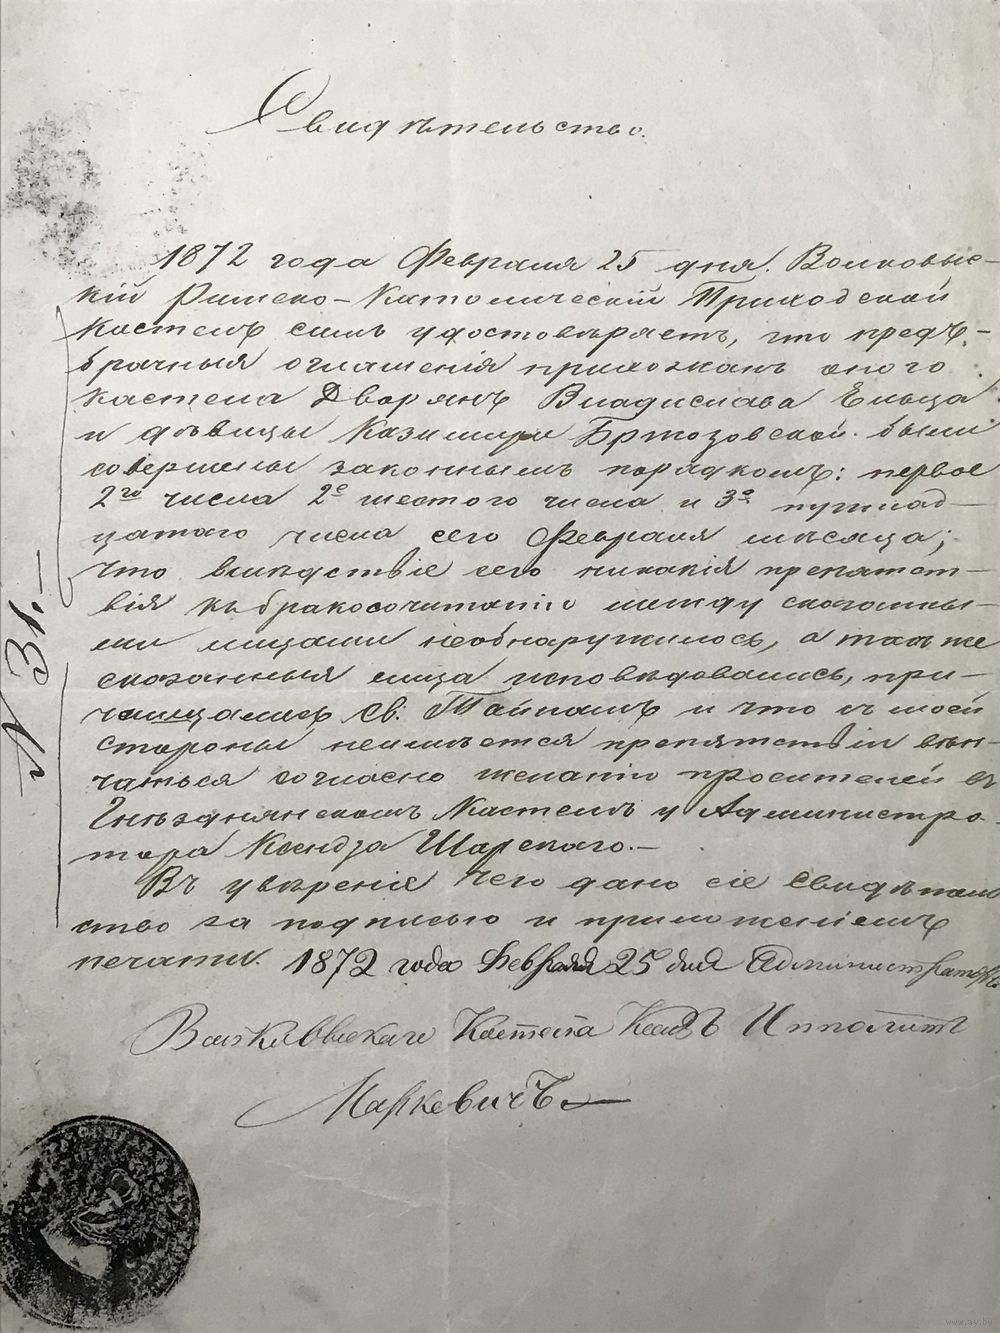 Свидѣтельство.
1872 года Февраля 25 дня. Волковыс-
кій Римско-Католическій Приходской
Костелъ симъ удостовѣряетъ, что предъ-
брачныя оглашенія прихожанъ оного
Костела Дворянъ Владислава Ельца
и дѣвицы Казимиры Бржозовской были
совершены законнымъ порядкомъ: первое
2го числа 2е шестого числа и 3е
цатого числа сего Февраля мѣсяца;
что вслѣдствіе сего никакія препятст-
вія къ бракосочитанію между сказанны-
ми лицами необнаружилось, а также
сказанныя лица исповѣдовались, при-
чащались Св. Тайнамъ и что съ моей
стороны неимѣется препятствій вѣн-
чаться согласно желанію просителей въ
Гнѣзднянскомъ Костелѣ у Администра-
тора Ксендза Шарскаго.—
Въ увѣреніе чего дано сіе свидѣтель
ство за подписью и приложеніемъ
печати. 1872 года Февраля 25 дня Администраторъ
Волковыскаго Костела Ксендзъ Ипполитъ
Маркевичъ
N 31.—
www.ay.by